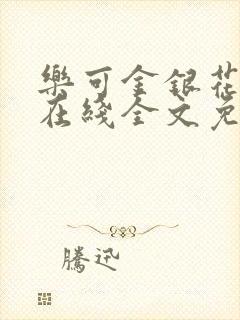 樂可金銀花
在綫全文免
騰迅